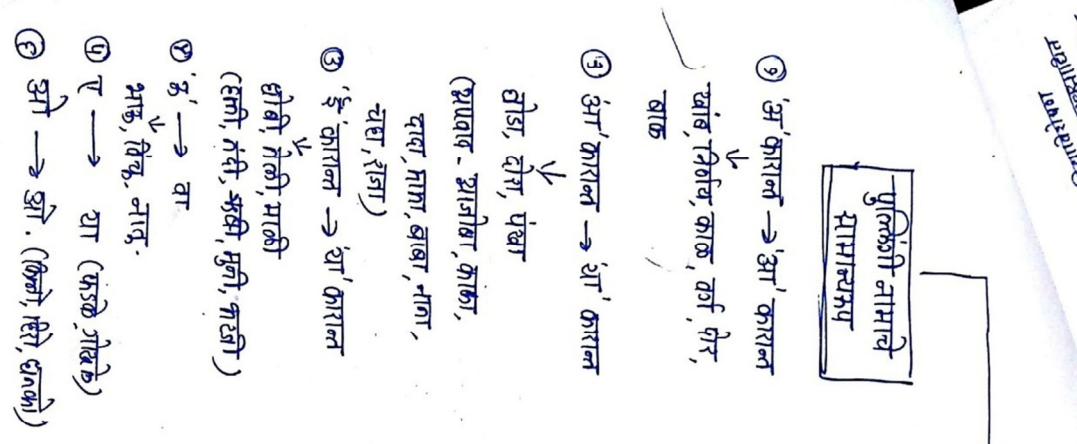 पुल्लिंगी नामाचे
सामान्यरूप
① 'अ' कारान्त → 'आ' कारान्त
खांब, निर्णय, काळ, वर्ग, पोर,
बाक
② 'आ' कारान्त → 'या' कारान्त
घोडा, दोरा, पंखा
(अपवाद - आजोबा, काका,
दादा, मामा, बाबा, नाना,
राजा)
③ 'ई' कारान्त → 'या' कारान्त
धोबी, तेली, माळी
(हत्ती, नंदी, मुनी, काजी)
④ 'ऊ' → वा
भाऊ, विंचू, लाडू.
⑤ ए → या (फडके, गोखले)
⑥ ओ → ओ. (किलो, हिरो, धनको)